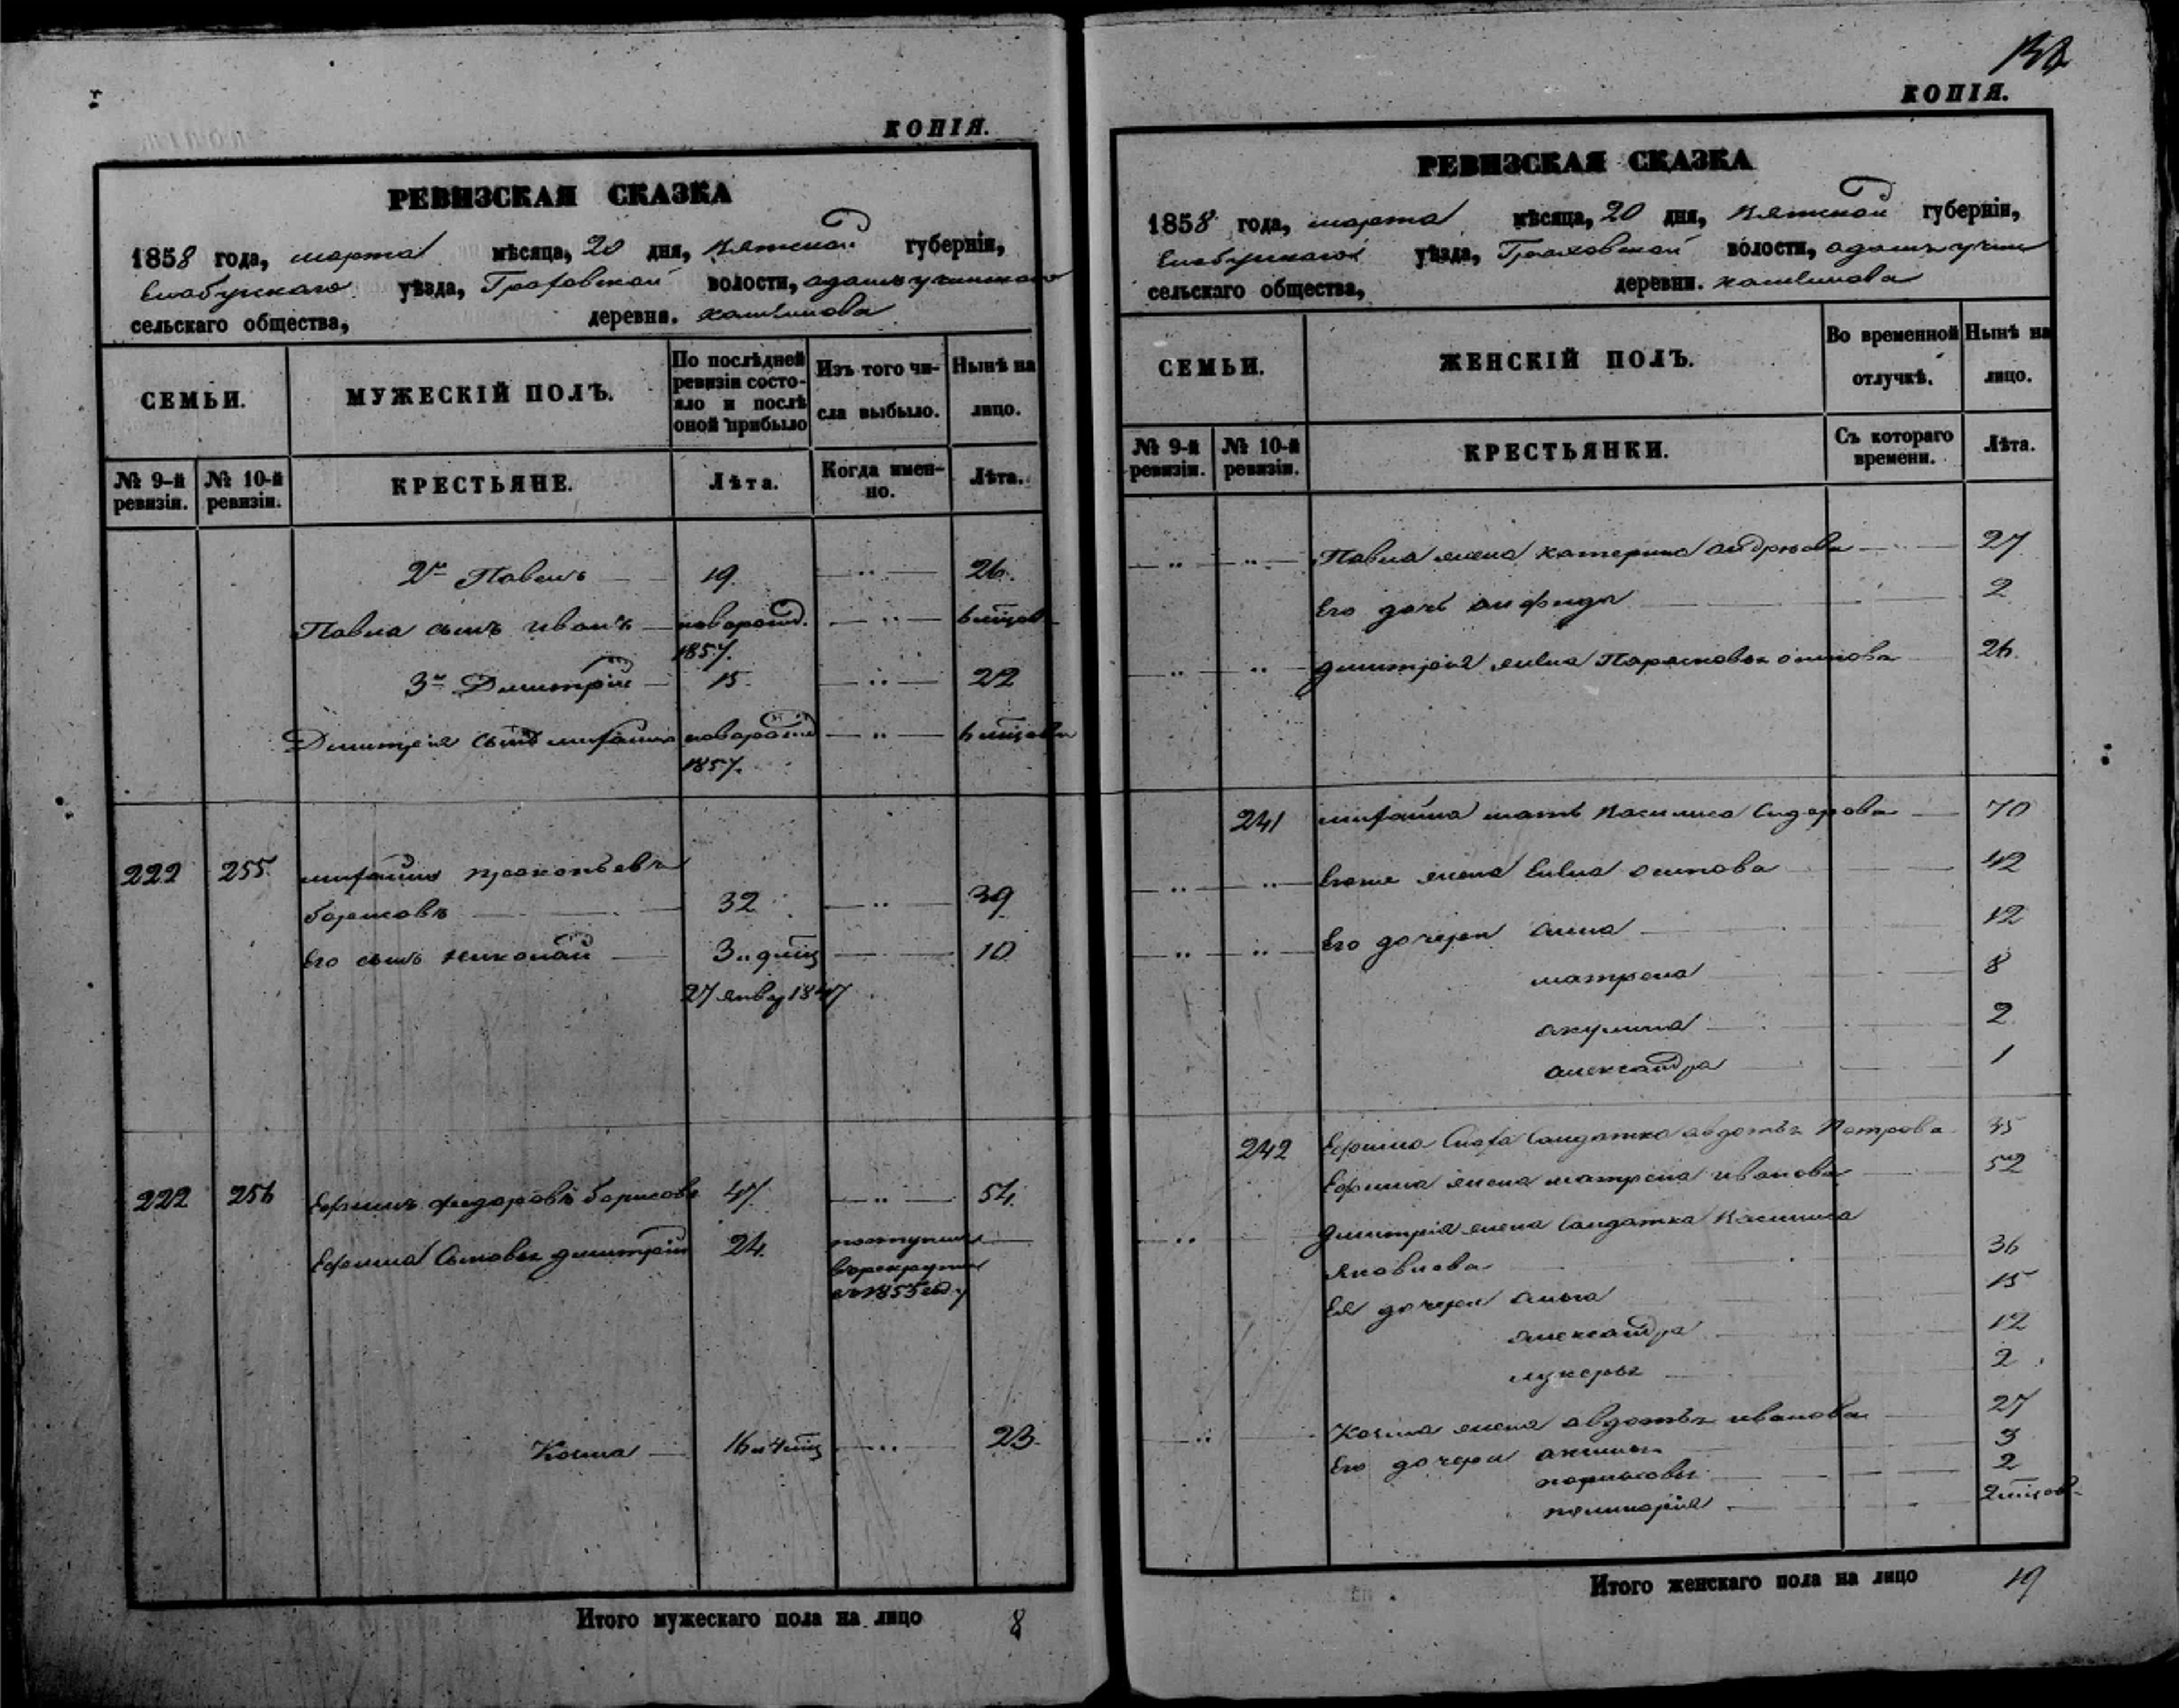 КОПІЯ.
РЕВИЗСКАЯ СКАЗКА
1858 года, марта мѣсяца, 20 дня, Вятской губерніи,
Елабужскаго уѣзда, Граховской волости,
сельскаго общества, деревни.
СЕМЬИ.
МУЖЕСКІЙ ПОЛЪ.
По послѣдней ревизіи состо-
яло и послѣ
оной прибыло
Изъ того чи-
сла выбыло.
Нынѣ на
лицо.
№ 9-й
ревизіи.
№ 10-й
ревизіи.
КРЕСТЬЯНЕ.
Лѣта.
Когда имен-
но.
Лѣта.
2й Павелъ 19. 26.
Павла сынъ Иванъ новорожд. 6 мѣсяц
1857.
3й Димитрій 15. 22
Димитрія сынъ Михаилъ новорожд 6 мѣсяц
1857.
222 255. Михаилъ Прокопьевъ
Борисовъ 32 39
Его сынъ Николай 10
27 янв 1847
222 256 Ефимъ Федоровъ Борисовъ 47 54.
Ефима сыновья Димитрій 24. поступилъ
въ рекруты
въ 1855 году
Козма 16 и 4 мѣц 23.
Итого мужескаго пола на лицо 8
КОПІЯ.
РЕВИЗСКАЯ СКАЗКА
1858 года, марта мѣсяца, 20 дня, Вятской губерніи,
Елабужскаго уѣзда, Граховской волости,
сельскаго общества, деревни.
СЕМЬИ.
ЖЕНСКІЙ ПОЛЪ.
Во временной
отлучкѣ.
Нынѣ на
лицо.
№ 9-й
ревизіи.
№ 10-й
ревизіи.
КРЕСТЬЯНКИ.
Съ котораго
времени.
Лѣта.
Павла жена Катерина Андреева 27
Его дочь Анфида 2
Димитрія жена Парасковья Осипова 26.
241 Михаила мать Василиса Сидорова 70
Егоже жена Осипова 42
Его дочери Анна 12
Матрена 8
Акулина 2
Александра 1
242 Ефима сноха солдатка Авдотья Петрова
Ефима жена Матрена Иванова 52
Димитрія жена солдатка Василиса
Яковлева 36
Ея дочери 15
Александра 12
Лукерья 2
Козма жена Авдотья Иванова 27
Его дочери 3
2
2 мѣсяц
Итого женскаго пола на лицо 19